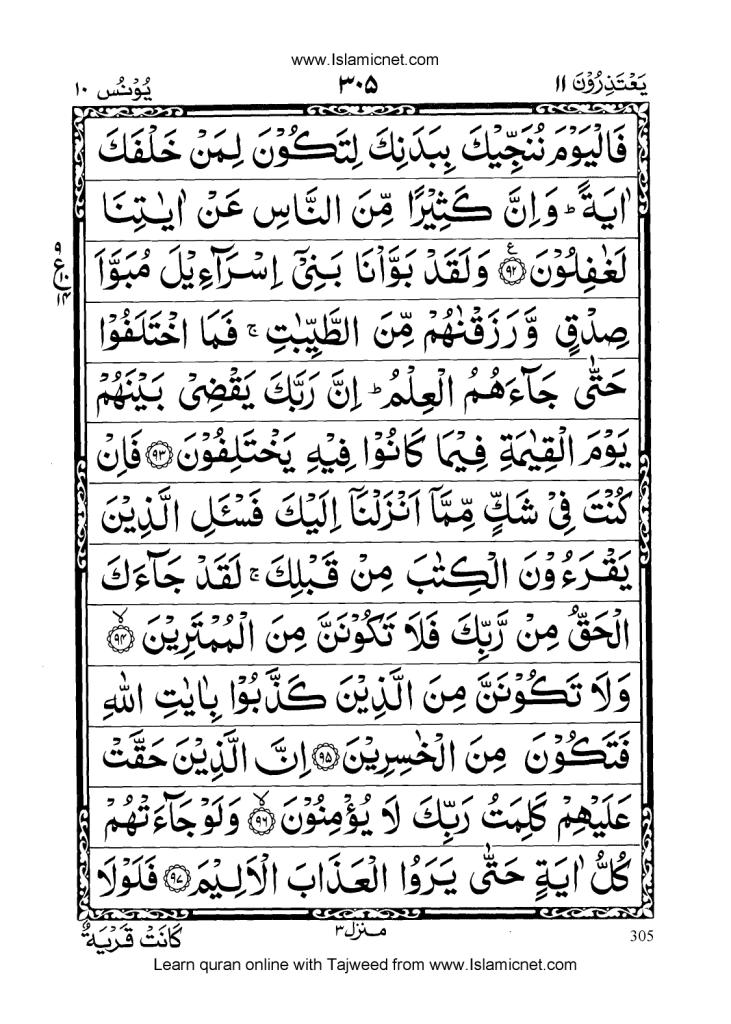 www.Islamicnet.com
يَعْتَذِرُوْنَ ۱۱ ۳۰۵ يُوْنُس ۱۰
فَالْيَوْمَ نُنَجِّيْكَ بِبَدَنِكَ لِتَكُوْنَ لِمَنْ خَلْفَكَ
اٰيَةً ؕ وَاِنَّ كَثِيْرًا مِّنَ النَّاسِ عَنْ اٰيٰتِنَا
لَغٰفِلُوْنَ ﴿۹۲﴾ ع وَلَقَدْ بَوَّاْنَا بَنِيْۤ اِسْرَآءِيْلَ مُبَوَّاَ
۹
ع ۱۰
۱۴
صِدْقٍ وَّرَزَقْنٰهُمْ مِّنَ الطَّيِّبٰتِ ۚ فَمَا اخْتَلَفُوْا
حَتّٰى جَآءَهُمُ الْعِلْمُ ؕ اِنَّ رَبَّكَ يَقْضِيْ بَيْنَهُمْ
يَوْمَ الْقِيٰمَةِ فِيْمَا كَانُوْا فِيْهِ يَخْتَلِفُوْنَ ﴿۹۳﴾ فَاِنْ
كُنْتَ فِيْ شَكٍّ مِّمَّاۤ اَنْزَلْنَاۤ اِلَيْكَ فَسْـَٔلِ الَّذِيْنَ
يَقْرَءُوْنَ الْكِتٰبَ مِنْ قَبْلِكَ ۚ لَقَدْ جَآءَكَ
الْحَقُّ مِنْ رَّبِّكَ فَلَا تَكُوْنَنَّ مِنَ الْمُمْتَرِيْنَ ﴿۹۴﴾ ۙ
وَلَا تَكُوْنَنَّ مِنَ الَّذِيْنَ كَذَّبُوْا بِاٰيٰتِ اللّٰهِ
فَتَكُوْنَ مِنَ الْخٰسِرِيْنَ ﴿۹۵﴾ اِنَّ الَّذِيْنَ حَقَّتْ
عَلَيْهِمْ كَلِمَتُ رَبِّكَ لَا يُؤْمِنُوْنَ ﴿۹۶﴾ ۙ وَلَوْ جَآءَتْهُمْ
كُلُّ اٰيَةٍ حَتّٰى يَرَوُا الْعَذَابَ الْاَلِيْمَ ﴿۹۷﴾ فَلَوْلَا
305 منزل ۳ كَانَتْ قَرْيَةٌ
Learn quran online with Tajweed from www.Islamicnet.com